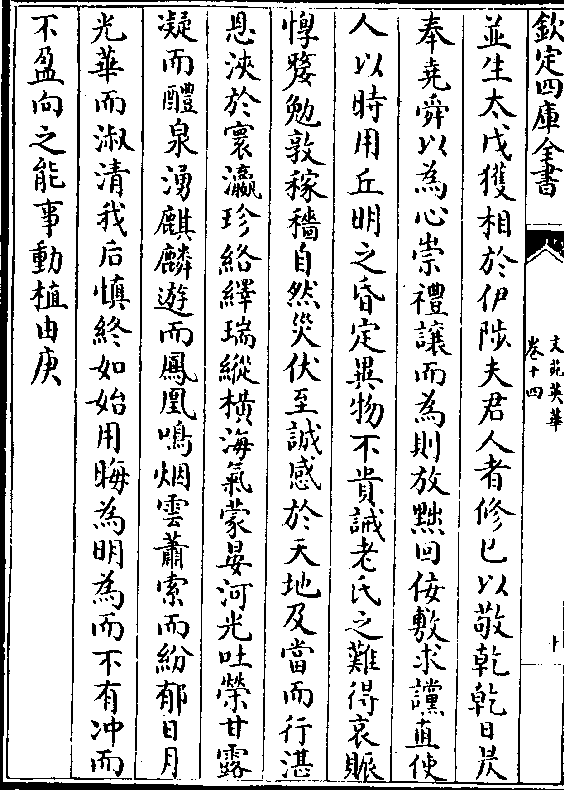 欽定四庫全書
文苑英華
卷十四
十
並生太戊獲相於伊陟夫君人者修已以敬乾乾日昃
奉堯舜以為心崇禮讓而為則放黜回佞敷求讜直使
人以時用丘明之昏定異物不貴誡老氏之難得哀賑
惸嫠勉敦稼穡自然災伏至誠感於天地及當而行湛
恩浹於寰瀛珍絡繹瑞縱橫海氣蒙晏河光吐榮甘露
凝而醴泉湧麒麟遊而鳳凰鳴烟雲蕭索而紛郁日月
光華而淑清我后慎終如始用晦為明為而不有冲而
不盈向之能事動植由庚